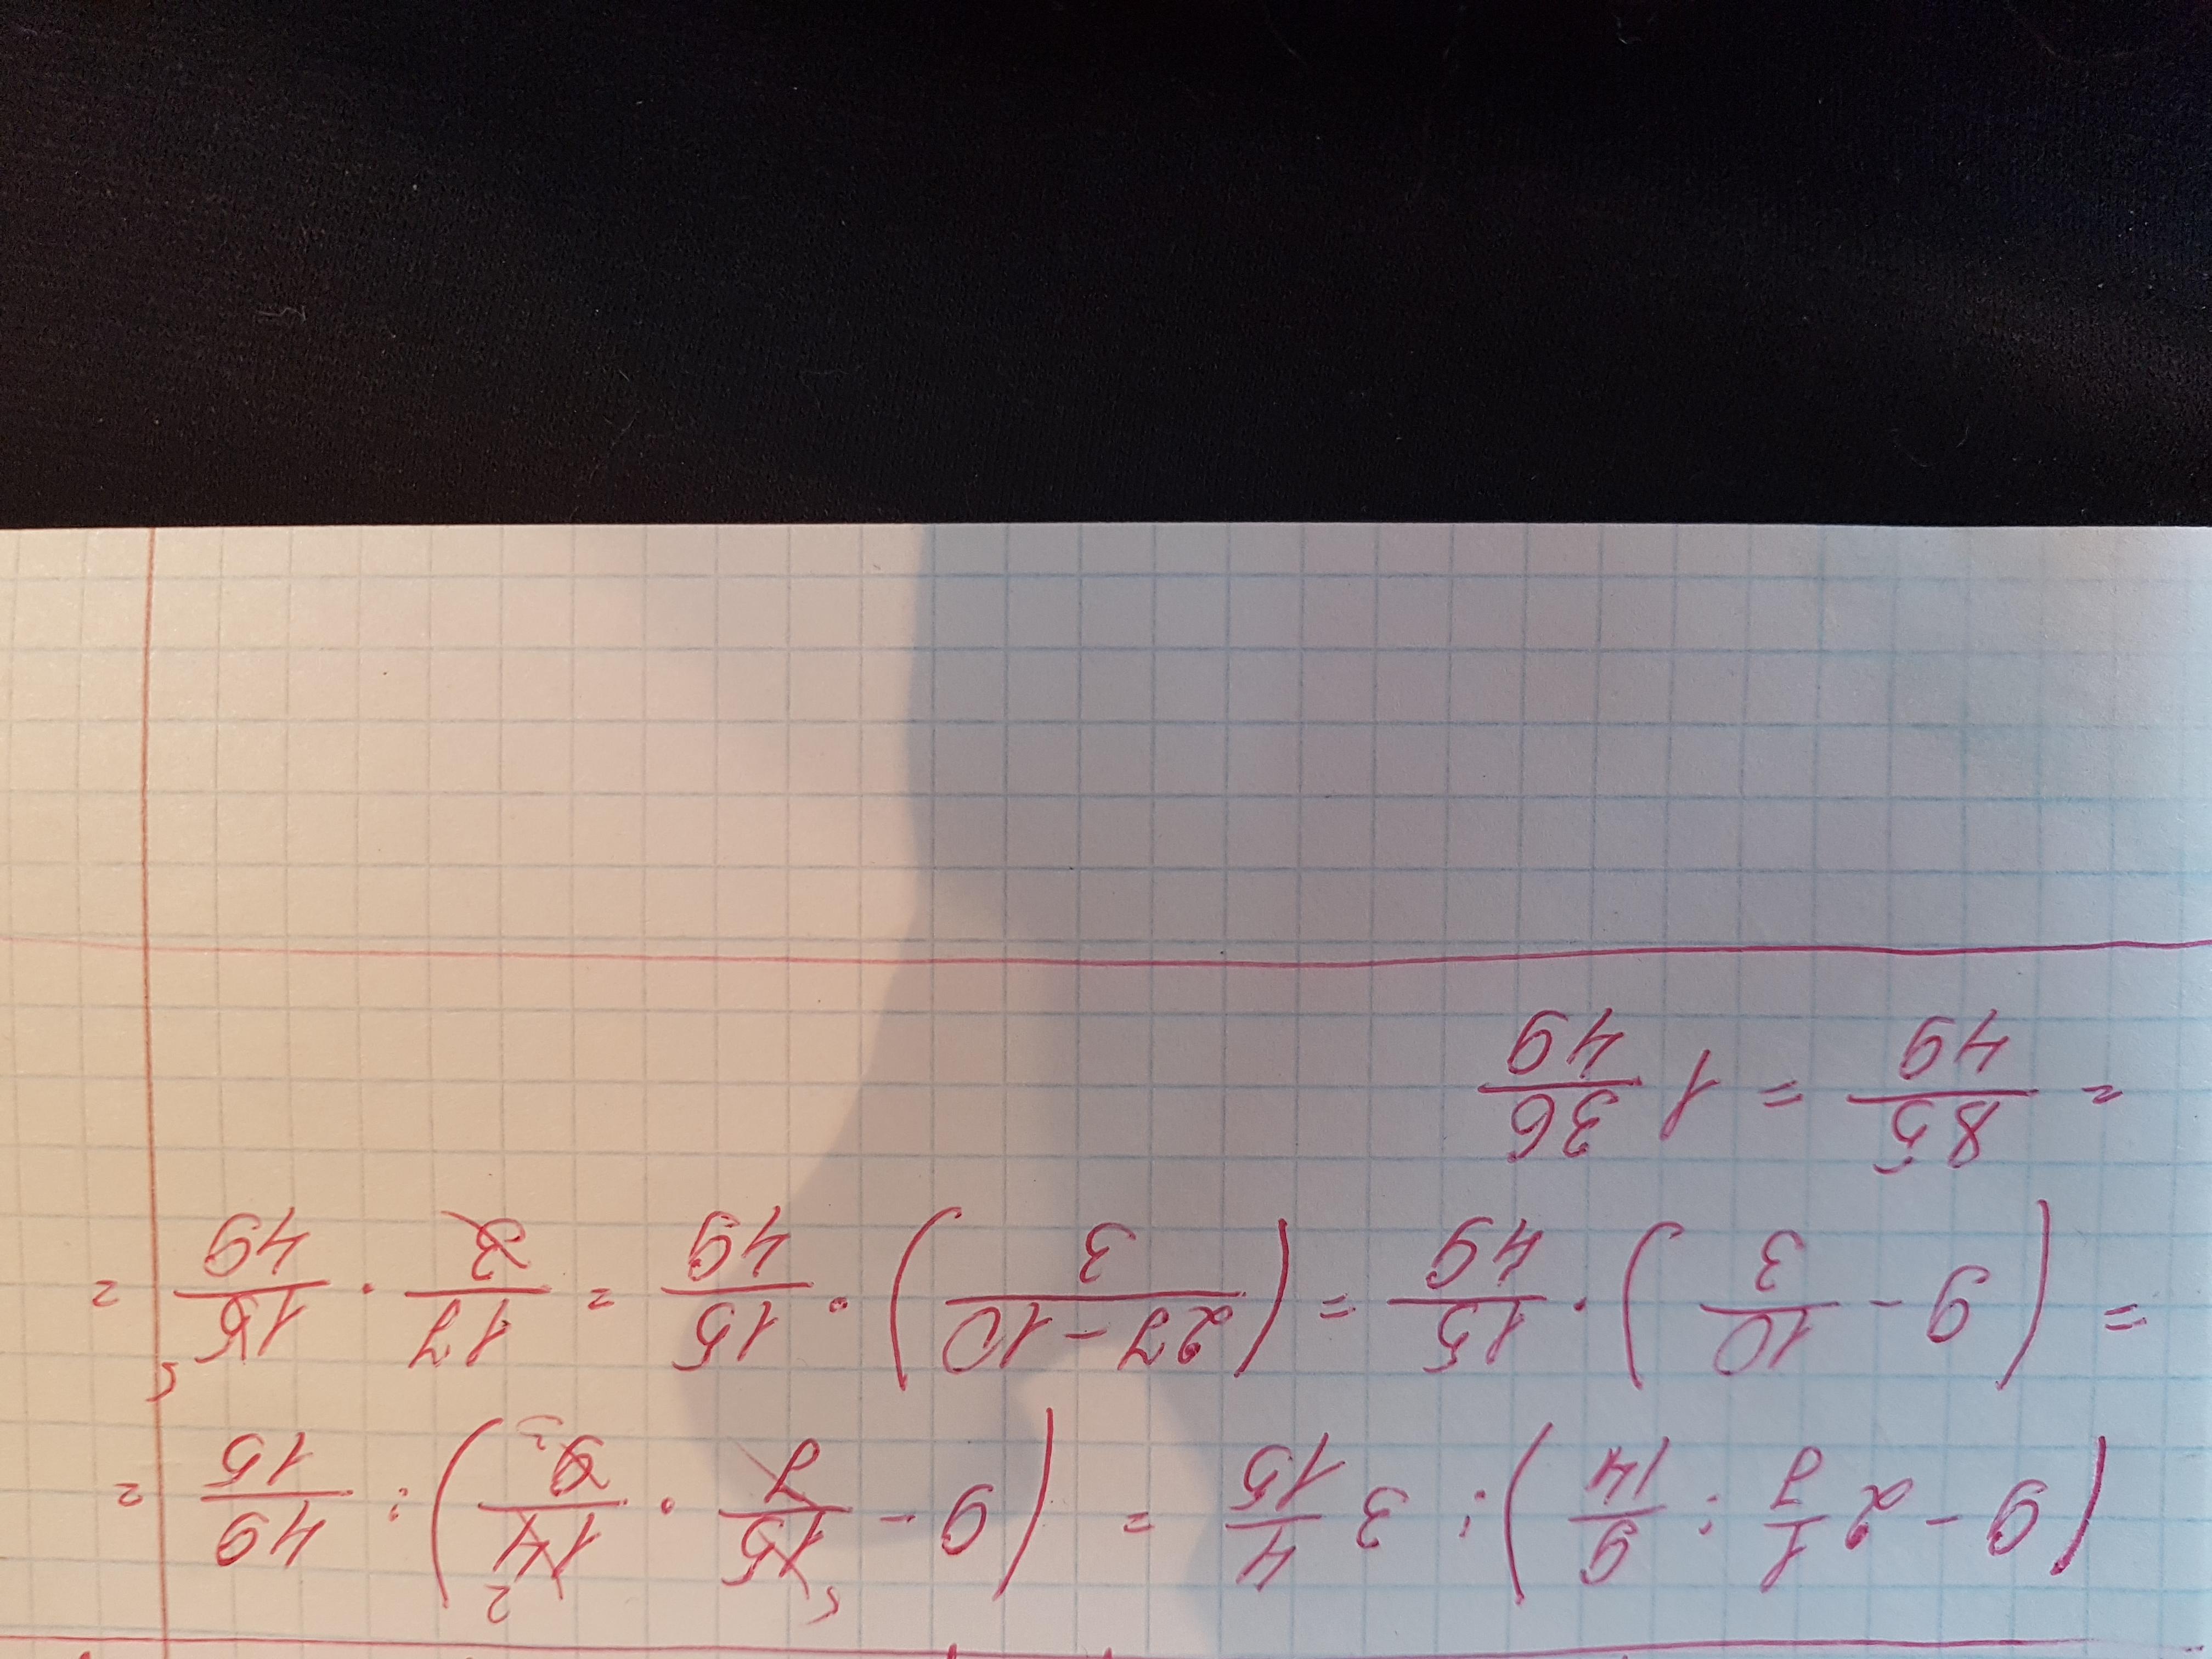 (9 - 2 1/7 : 9/14) : 3 4/15 = (9 - 15/7 5 · 14/9 2 3) : 49/15 =
= (9 - 10/3) · 15/49 = (27-10/3) · 15/49 = 17/3 · 15/49 5 =
= 85/49 = 1 36/49